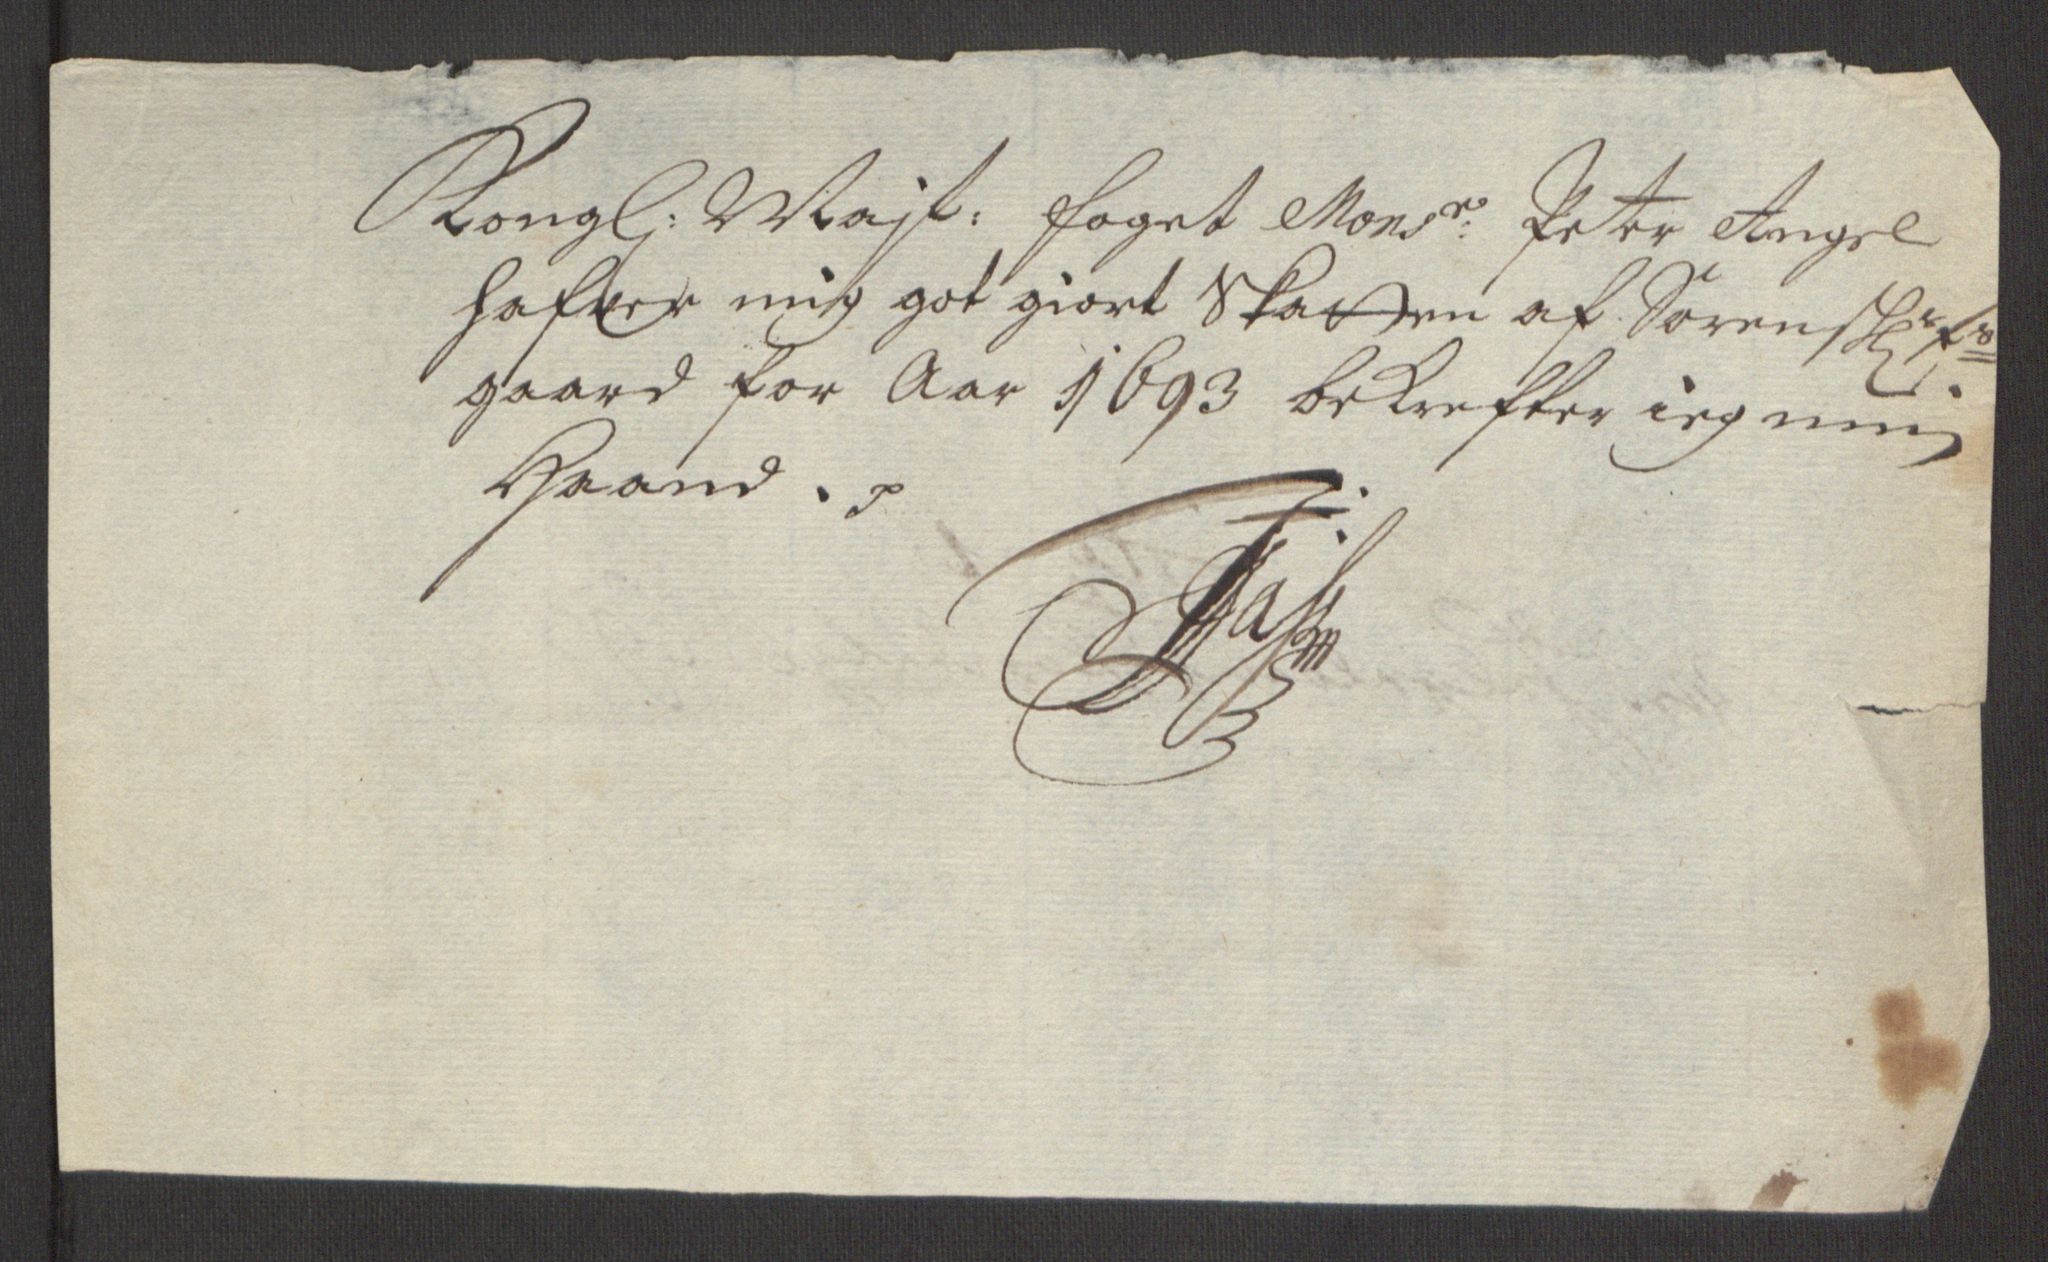 Kongl: Maÿt: foget Monsr: Peter Angel
hafuer mig got giort Skatten af Sörenskr
gaard for Aar 1693 bekrefter ieg min
Haand.